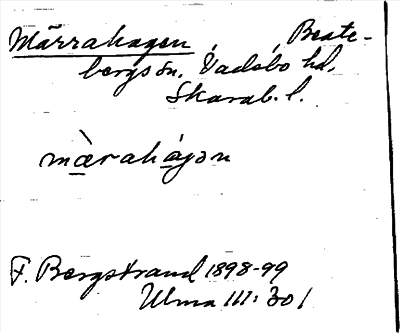 Märrahagen, Beate-
bergs sn, Vadsbo hd,
Skarab. l.
mæ̀rahágən
F. Bergstrand 1898-99
Ulma 111:301